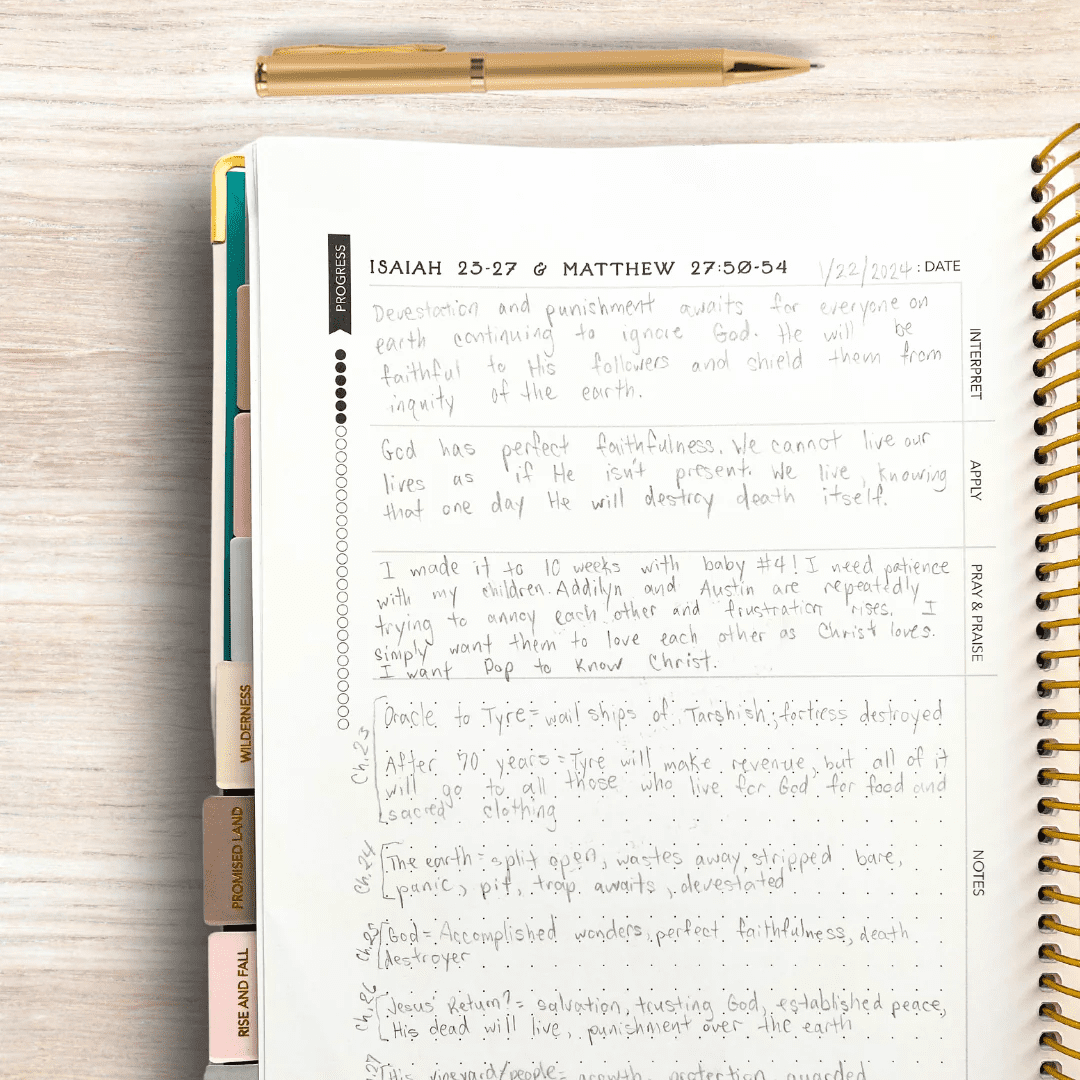 PROGRESS
ISAIAH 23-27 & MATTHEW 27:50-54
1/22/2024 : DATE
Devestation and punishment awaits for everyone on
earth continuing to ignore God. He will be
faithful to His followers and shield them from
inquity of the earth.
INTERPRET
God has perfect faithfulness. We cannot live our
lives as if He isn't present. We live, knowing
that one day He will destroy death itself.
APPLY
I made it to 10 weeks with baby #4! I need patience
with my children. Addilyn and Austin are repeatedly
trying to annoy each other and frustration rises. I
simply want them to love each other as Christ loves.
I want Pop to know Christ.
PRAY & PRAISE
Ch. 23
Oracle to Tyre = wail ships of Tarshish; fortress destroyed
After 70 years = Tyre will make revenue, but all of it
will go to all those who live for God for food and
sacred clothing
Ch. 24
The earth = split open, wastes away, stripped bare,
panic, pit, trap awaits, devestated
Ch. 25
God = Accomplished wonders, perfect faithfulness, death
destroyer
Ch. 26
Jesus' Return? = salvation, trusting God, established peace,
His dead will live, punishment over the earth
.27
His vineyard/people = growth, protection, guarded
NOTES
WILDERNESS
PROMISED LAND
RISE AND FALL